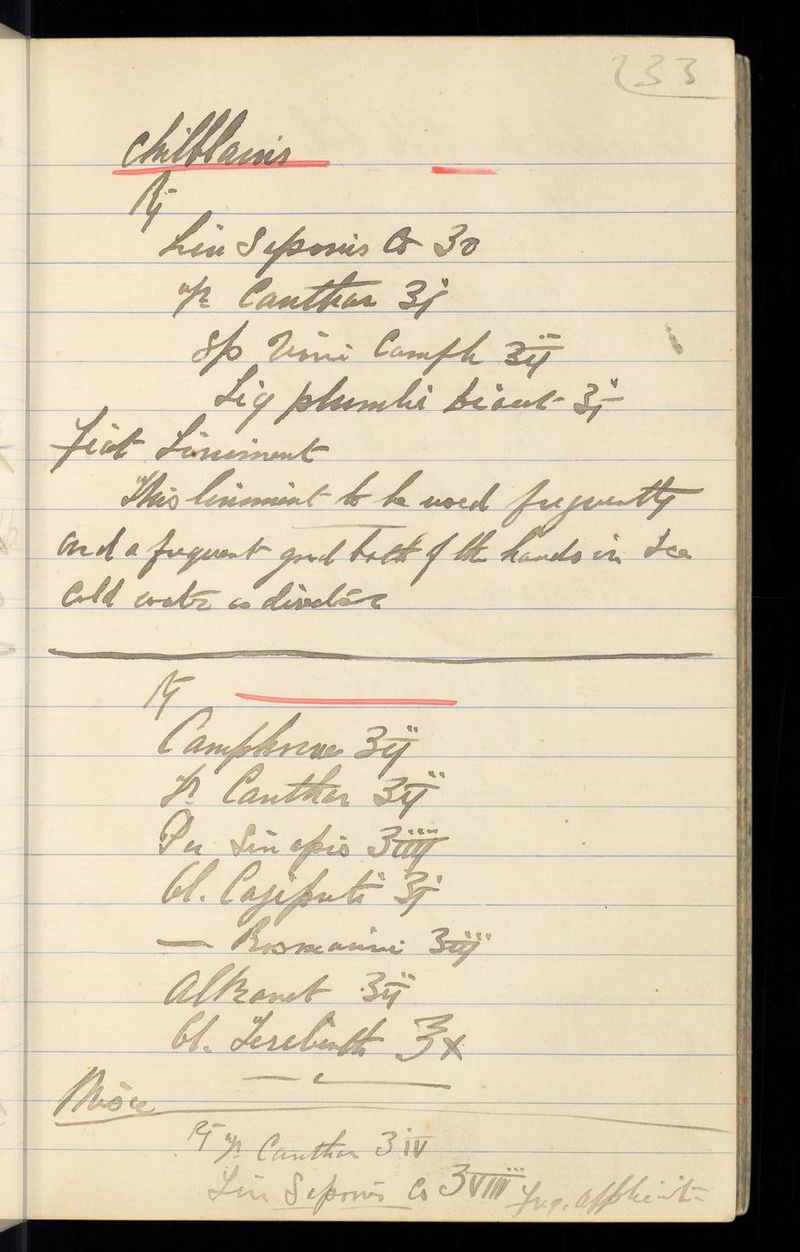 233
Chilblains
℞
Lin Saponis Co
Tr Canthar ʒj
Sp Vini Camph ʒij
Liq plumbi ʒj
Fiat Liniment
This liniment to be used frequently
and a frequent good bath of the hands in Ice
Cold water as directed
℞
Camphorae ʒij
Tr Canthar ʒij
Pu Sinapis ʒiiij
Ol. Cajiputi ʒj
— Rosmarini ʒiij
Alkanet ʒij
Ol. Terebinth ℥x
℞ Tr Canthar ʒiv
Lin Saponis Co ʒviii